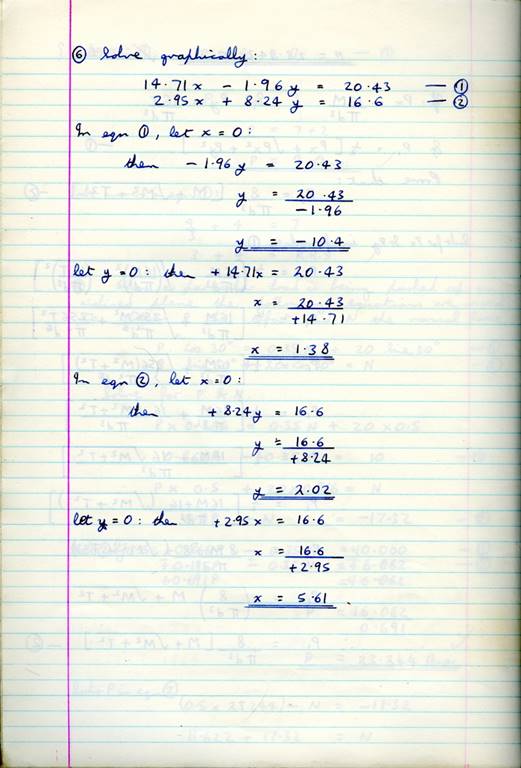 ⑥ Solve graphically:
14.71x - 1.96y = 20.43 — ①
2.95x + 8.24y = 16.6 — ②
In eqn ①, let x = 0:
then - 1.96y = 20.43
y = 20.43
-1.96
y = -10.4
let y = 0: then + 14.71x = 20.43
x = 20.43
+14.71
x = 1.38
In eqn ②, let x = 0:
then + 8.24y = 16.6
y = 16.6
+8.24
y = 2.02
let y = 0: then +2.95x = 16.6
x = 16.6
+2.95
x = 5.61.